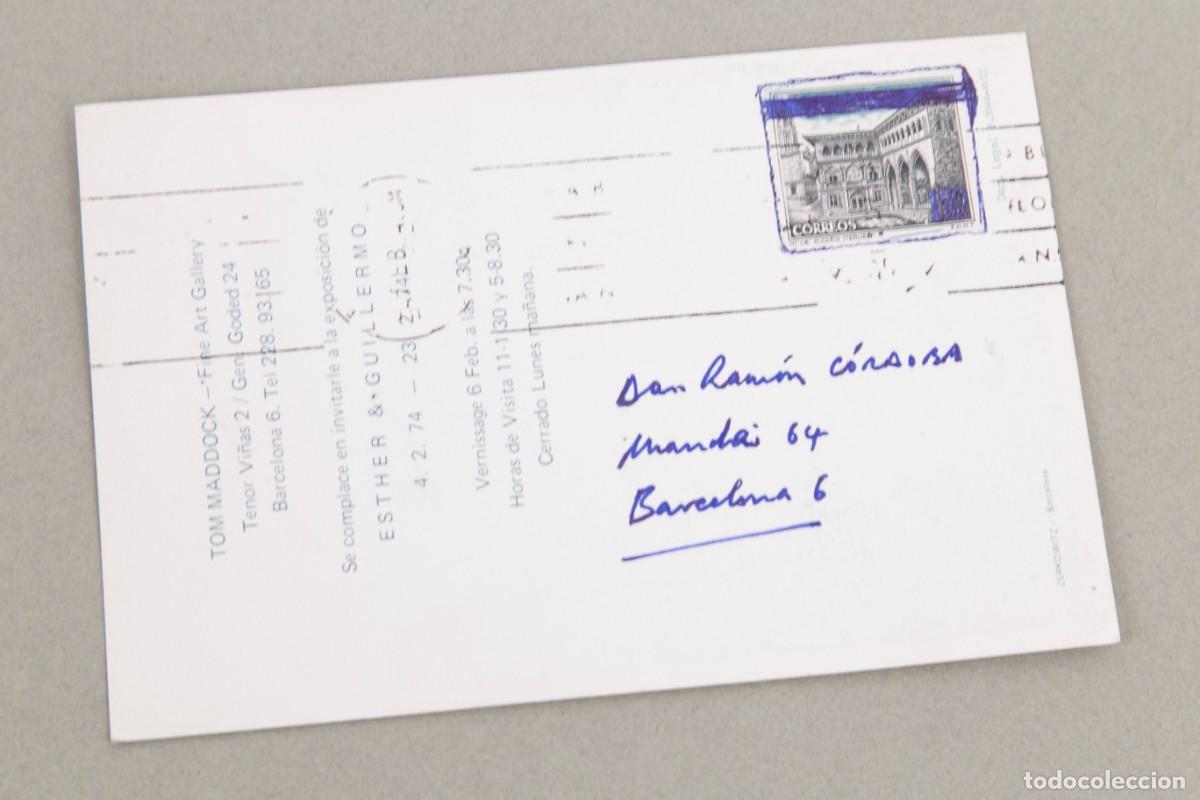 TOM MADDOCK – Fine Art Gallery
Tenor Viñas 2 / Gen. Goded 24
Barcelona 6. Tel 228. 93 65
Se complace en invitarle a la exposición de
ESTHER & GUILLERMO
4. 2. 74 – 23
Vernissage 6 Feb. a las 7.30
Horas de Visita 11-1.30 y 5-8.30
Cerrado Lunes mañana.
CORREOS
Don Ramón CÓRDOBA
64
Barcelona 6
ZERKOWITZ - Barcelona
todocoleccion